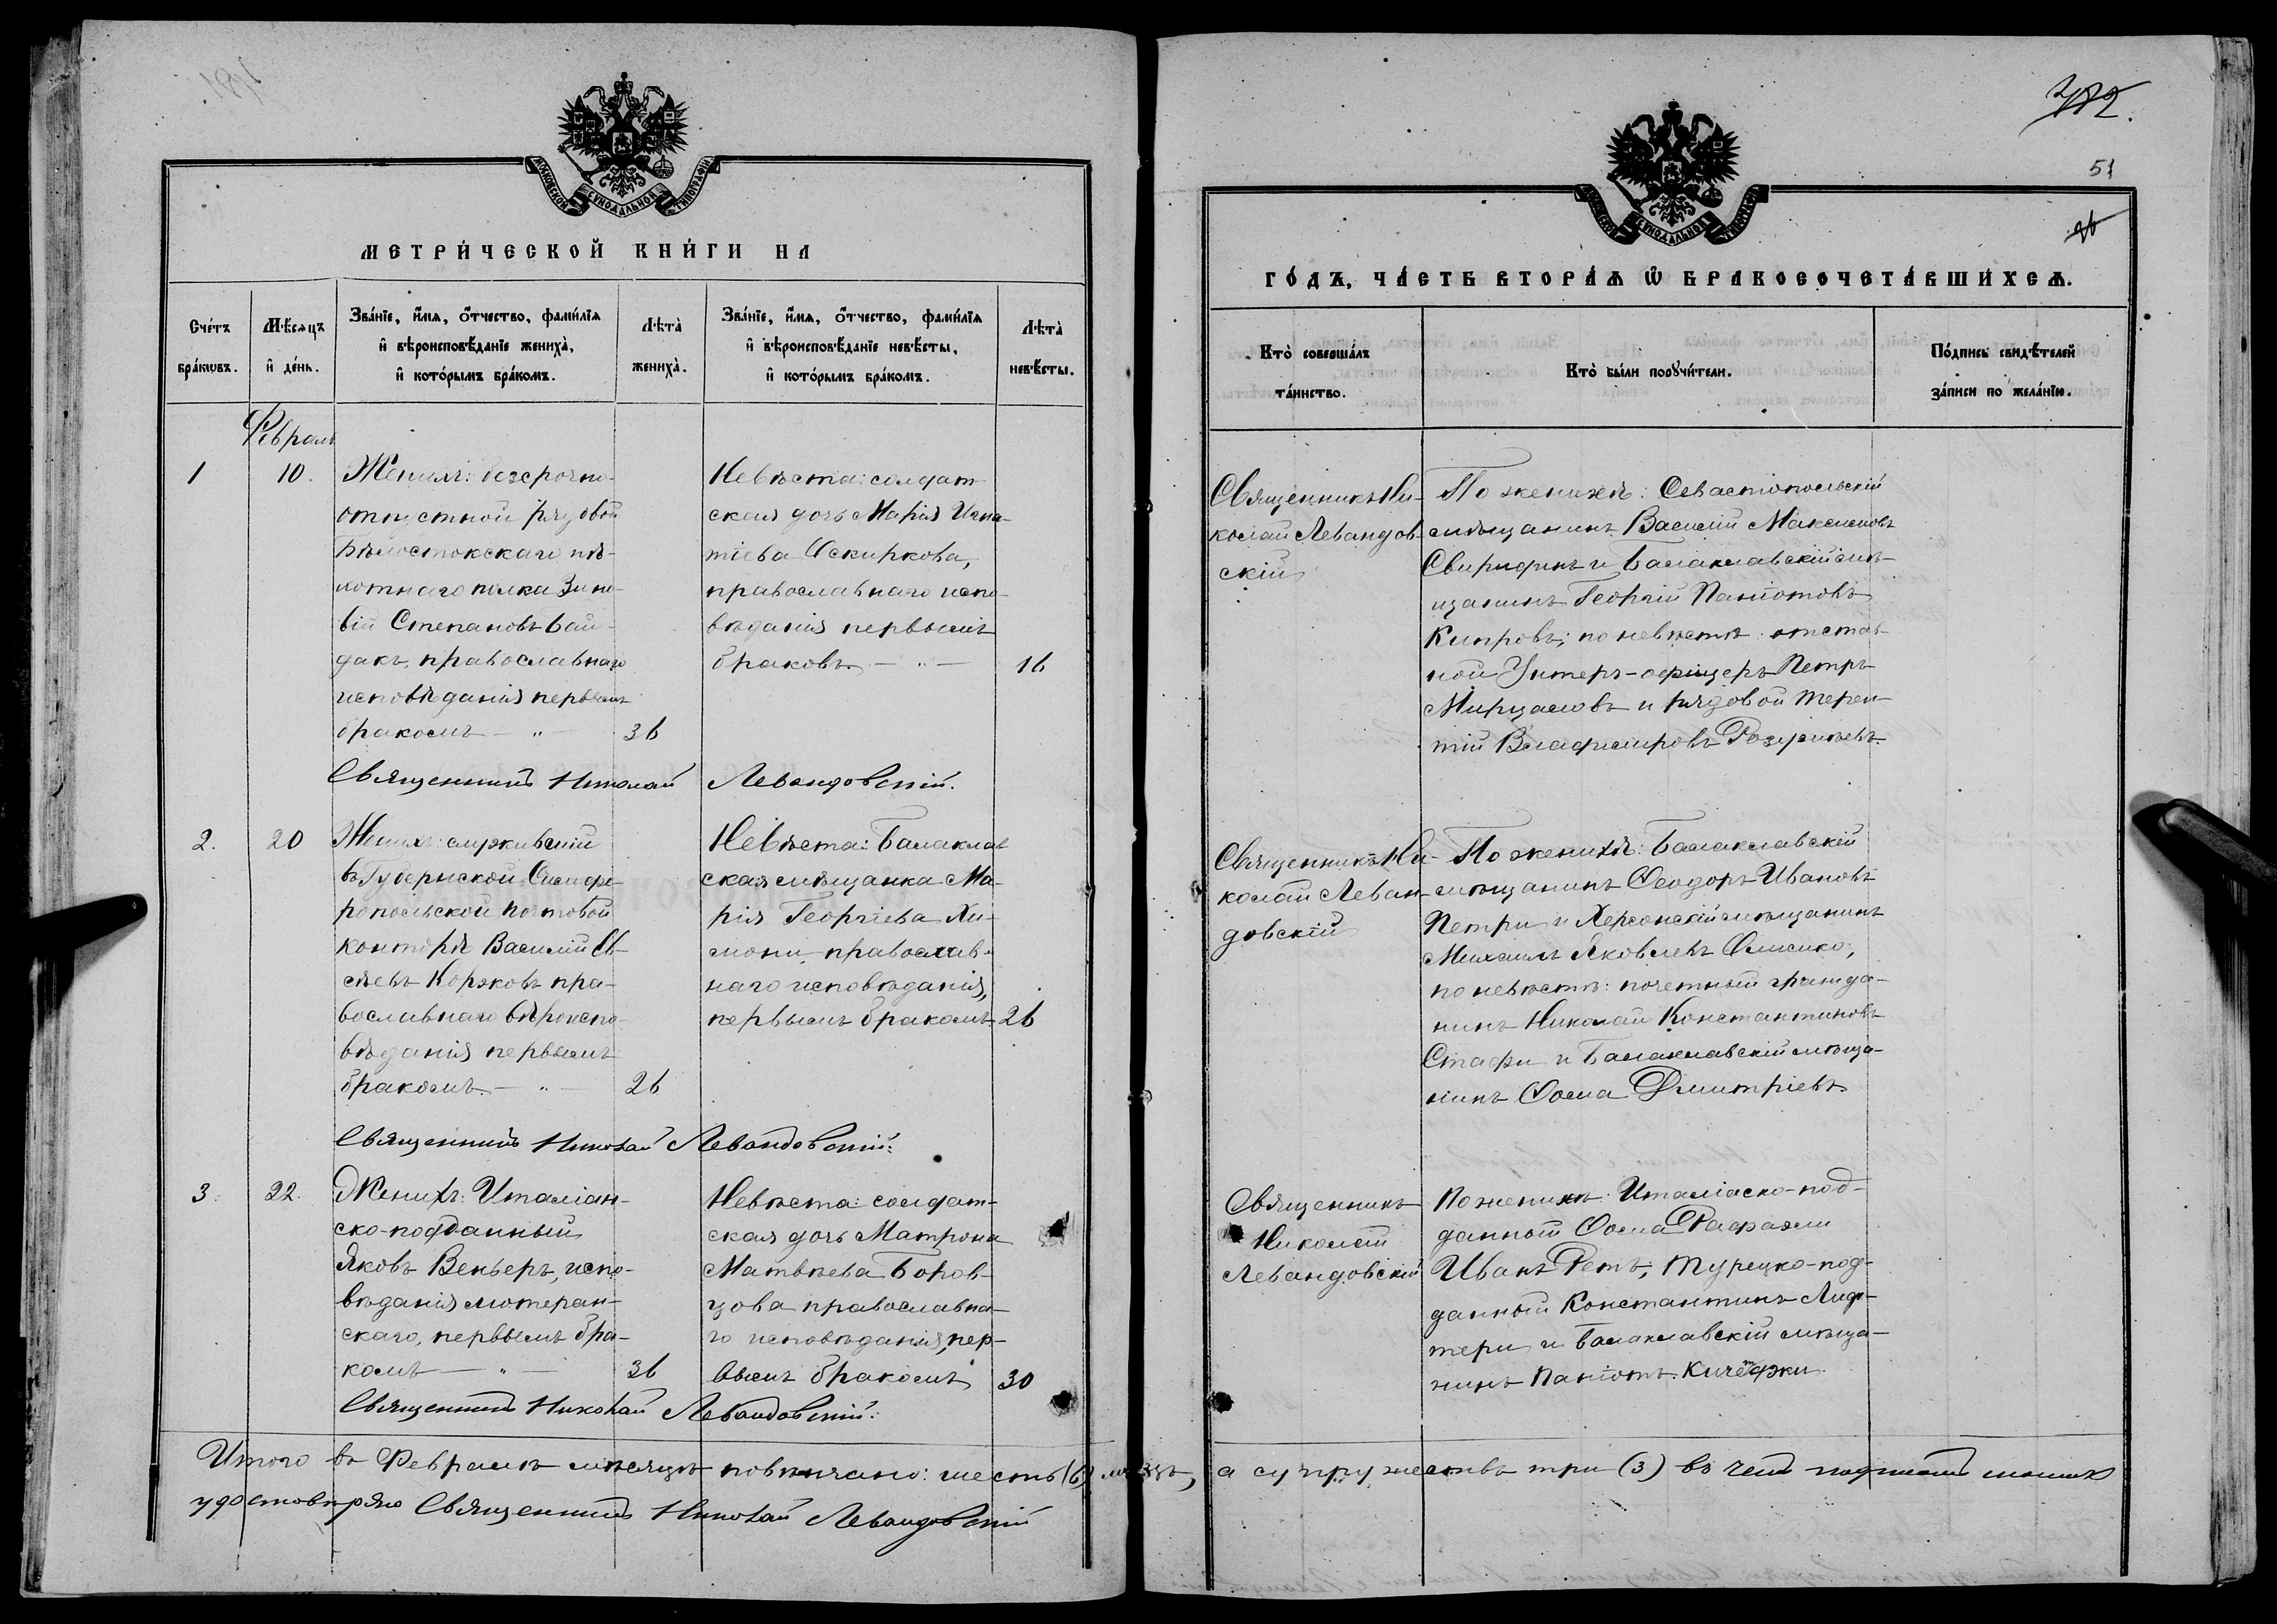 МОСКОВСКОЙ СѴНОДАЛЬНОЙ ТИПОГРАФІИ
МЕТРИ́ЧЕСКОЙ КНИ́ГИ НА
Сче́тъ бра́кѡвъ.
Мѣ́сяцъ и҆ де́нь.
Зва́нїе, и҆́мѧ, ѻ҆́тчество, фами́лїѧ
и҆ вѣроисповѣ́данїе жениха̀,
и҆ кото́рымъ бра́комъ.
Лѣта̀ жениха̀.
Зва́нїе, и҆́мѧ, ѻ҆́тчество, фами́лїѧ
и҆ вѣроисповѣ́данїе невѣ́сты,
и҆ кото́рымъ бра́комъ.
Лѣта̀ невѣ́сты.
Февраль
1
10.
Женихъ: безсрочно-
отпустной рядовой
Бѣлостокскаго пѣ-
хотнаго полка Зино-
вій Степановъ Бай-
дакъ, православнаго
исповѣданія первымъ
бракомъ — " — 36
Невѣста: солдат-
ская дочь Марія Игна-
тіева Оскиркова,
православнаго испо-
вѣданія первымъ
бракомъ — " — 16
Священникъ Николай Левандовскій.
2.
20
Женихъ: служившій
въ Губернской Симфе-
ропольской почтовой
конторѣ Василій Ев-
сѣевъ Коржовъ пра-
вославнаго вѣроиспо-
вѣданія первымъ
бракомъ — " — 26
Невѣста: Балаклав
ская мѣщанка Ма-
рія Георгіева Хи-
мони, православ-
наго исповѣданія,
первымъ бракомъ 26
Священникъ Николай Левандовскій.
3.
22.
Женихъ: Италіан-
ско-подданный
Яковъ Веньеръ, испо-
вѣданія лютеран-
скаго, первымъ бра-
комъ — " — 36
Невѣста: солдат-
ская дочь Матрона
Матвѣева Боров-
цова православна-
го исповѣданія, пер-
вымъ бракомъ 30
Священникъ Николай Левандовскій.
Итого въ Февралѣ мѣсяцѣ повѣнчано: шесть (6) лицъ,
удостовѣряю Священникъ Николай Левандовскій
482.
51
26
МОСКОВСКОЙ СѴНОДАЛЬНОЙ ТИПОГРАФІИ
ГО́ДЪ, ЧА́СТЬ ВТОРА́Ѧ Ѡ҆ БРАКОСОЧЕТА́ВШИХСѦ.
Кто̀ соверша́лъ та́инство.
Кто̀ бы́ли порꙋчи́тели.
По́дпись свидѣ́телей за́писи по жела́нїю.
Священникъ Ни-
колай Левандов-
скій
По женихѣ: Севастопольскій
мѣщанинъ Василій Максимовъ
Свиридинъ и Балаклавскій мѣ-
щанинъ Георгій Панiотовъ
Кипровъ; по невѣстѣ: отстав-
ной Унтеръ-офицеръ Петръ
Мирцаловъ и рядовой Терен-
тій Владиміровъ
Священникъ Ни-
колай Леван-
довскій
По женихѣ: Балаклавскій
мѣщанинъ Ѳеодоръ Ивановъ
Петри и Херсонскій мѣщанинъ
Михаилъ Яковлевъ
по невѣстѣ: почетный гражда-
нинъ Николай Константиновъ
Стафи и Балаклавскій мѣща-
нинъ Ѳома Дмитріевъ
Священникъ
Николай
Левандовскій
По женихѣ: Италіаско-под-
данный Ѳома Рафаели
Иванъ Ретъ, Турецко-под-
данный Константинъ Лиф-
тери и Балаклавскій мѣща-
нинъ Панiотъ Кичеджи
а супружествъ три (3) въ чемъ подписомъ моимъ